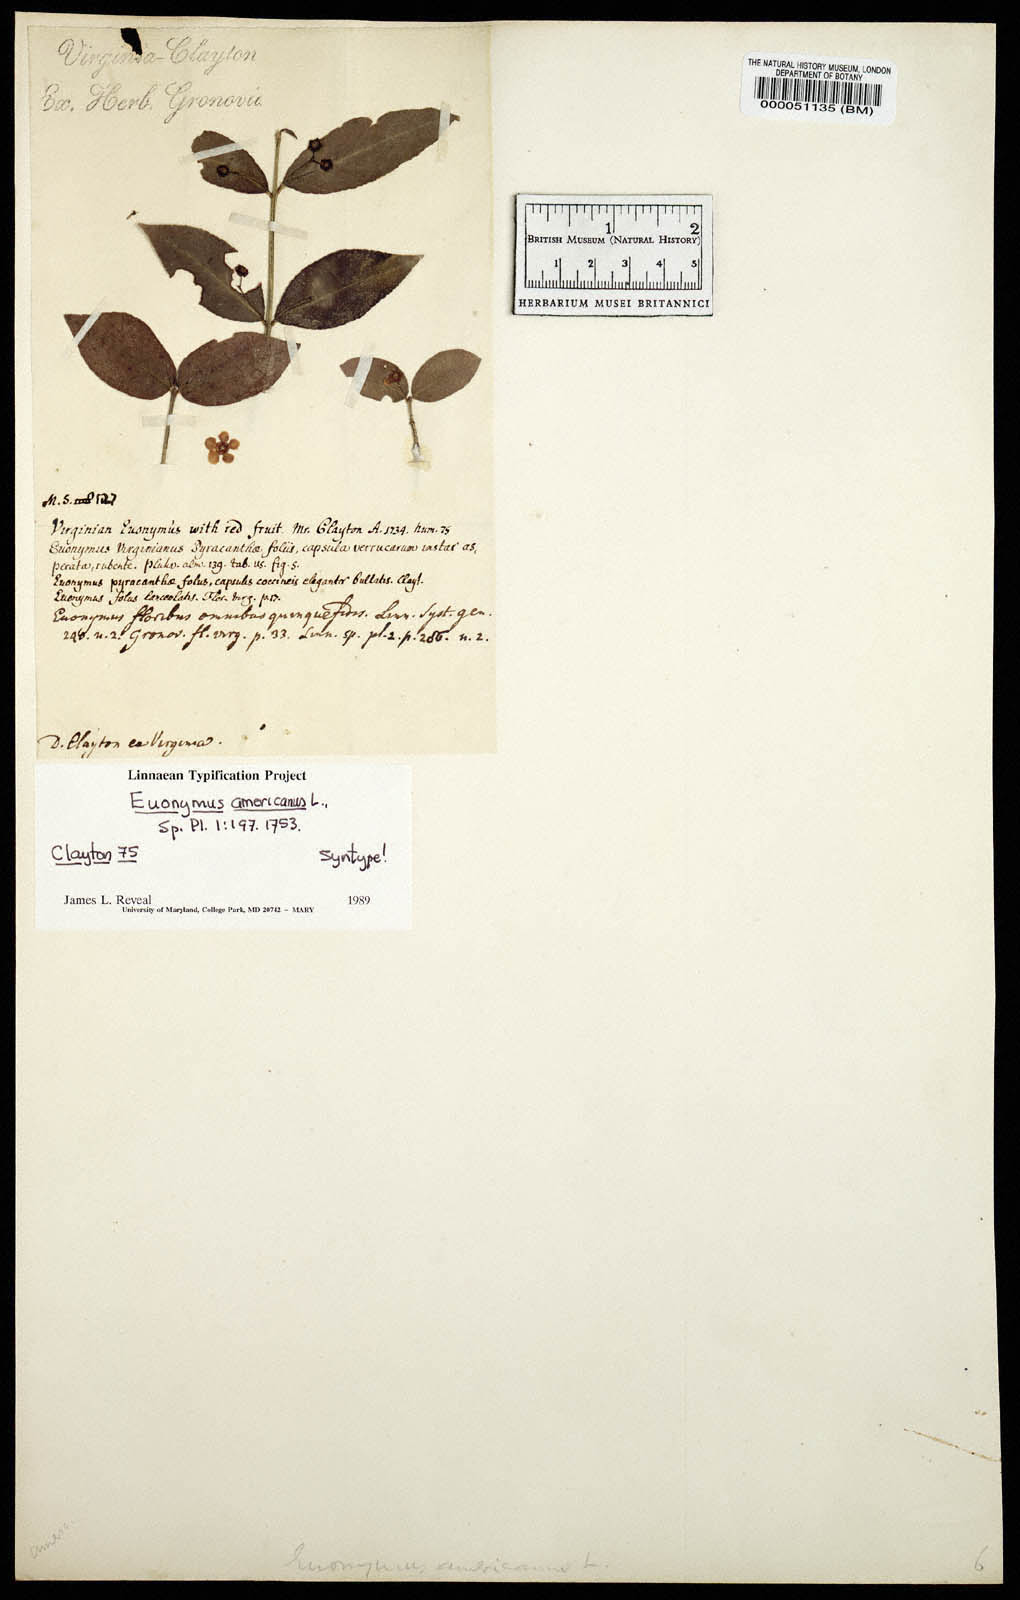 Virginia - Clayton
Ex. Herb. Gronovii
THE NATURAL HISTORY MUSEUM, LONDON
DEPARTMENT OF BOTANY
000051135 (BM)
1 2
BRITISH MUSEUM (NATURAL HISTORY)
1 2 3 4 5
HERBARIUM MUSEI BRITANNICI
M. S. 127
Virginian Euonymus with red fruit. Mr. Clayton A. 1734. num. 75
Euonymus Virginianus Pyracanthæ foliis, capsula verrucarum instar as,
perata, rubente. Pluk. alm. 139. tab. 115. fig. 5.
Euonymus pyracanthæ foliis, capsulis coccineis eleganter bullatis. Clayt.
Euonymus foliis lanceolatis. Flor. Virg. p. 17.
Euonymus floribus omnibus quinquefidis. Linn. Syst. gen.
n. 2. Gronov. fl. virg. p. 33. Linn. sp. pl. 2. p. 286. n. 2.
D. Clayton ex Virginia.
Linnaean Typification Project
Euonymus americanus L.,
Sp. Pl. 1:197. 1753.
Clayton 75 Syntype!
James L. Reveal 1989
University of Maryland, College Park, MD 20742 – MARY
Euonymus americanus L.
6